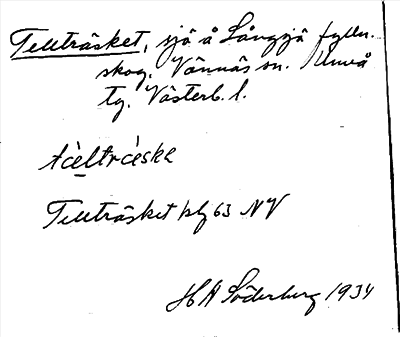 Tellträsket, sjö å Långsjö fylln.
skog. Vännäs sn. Umeå
tg. Västerb. l.
Tellträsket blg 63 NV
H A Söderberg 1934